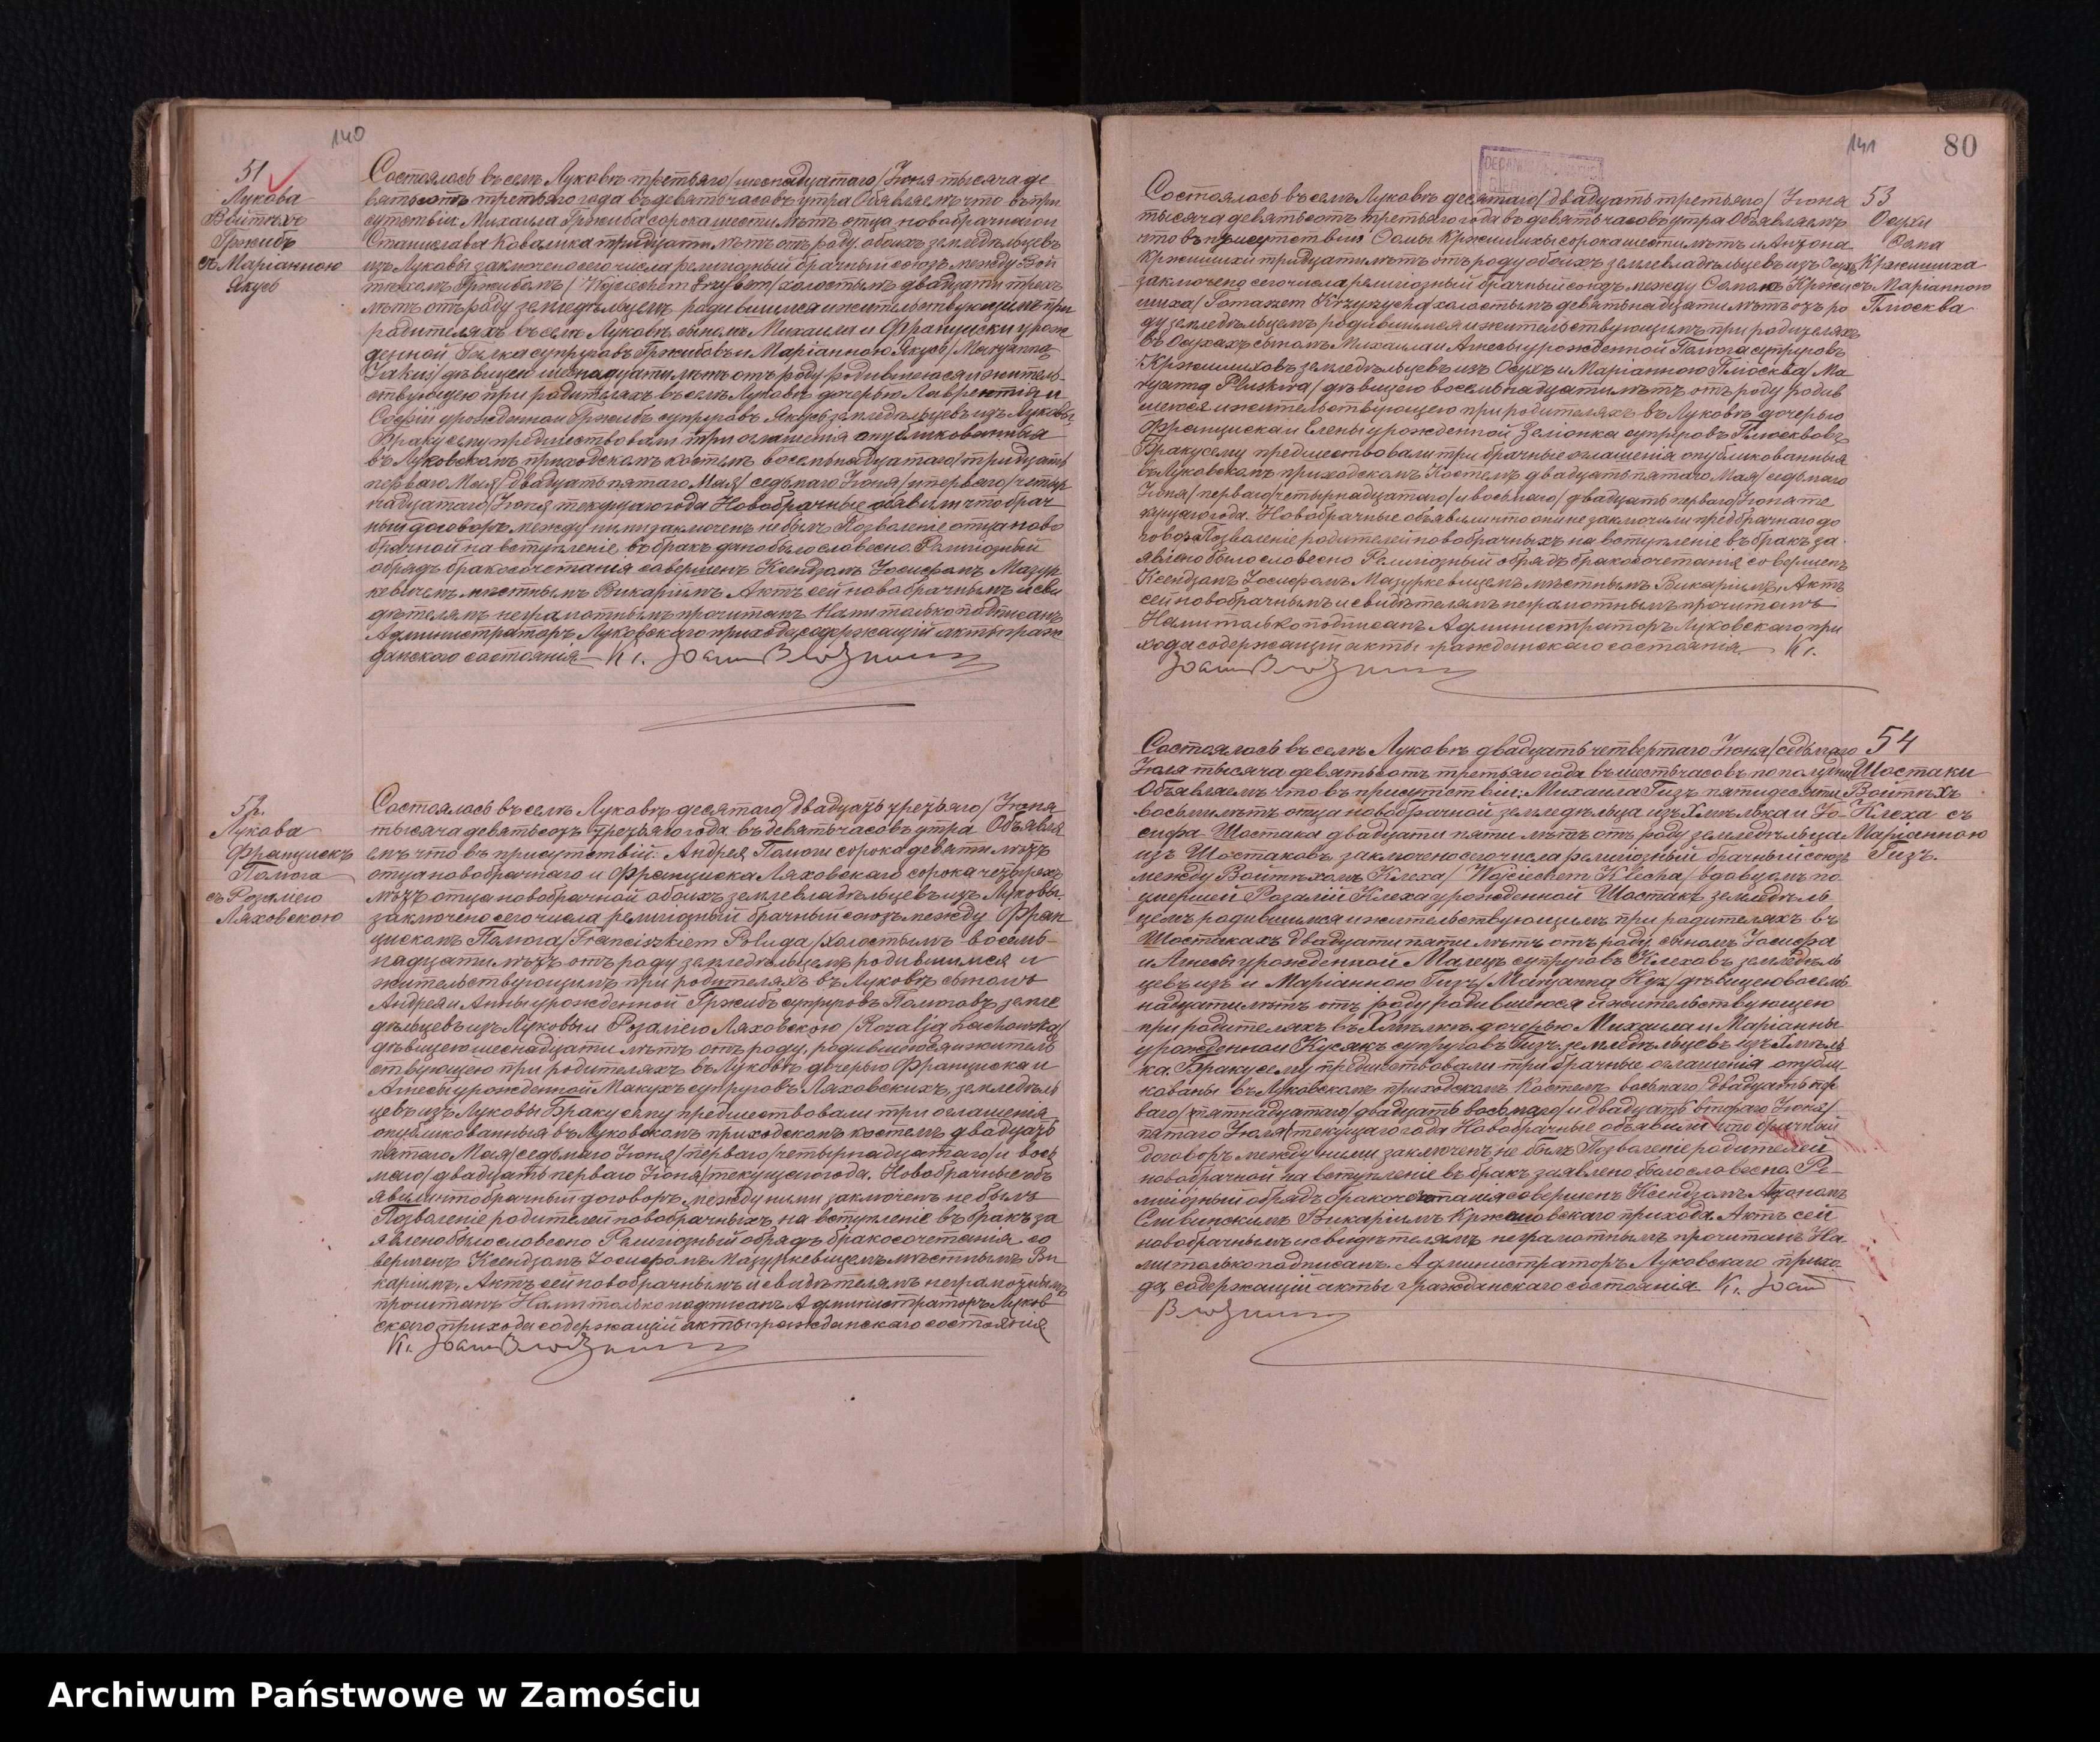 140
51
Лукова
Войтѣхъ
Гржибъ
съ Маріанною
Якусь
Состоялось въ селѣ Луковѣ третьяго/шеснадцатаго/Іюня тысяча де
вятьсотъ третьяго года въ девять часовъ утра Объявляемъ что въ при
сутствіи Михаила Гржиба сорока шести лѣтъ отца новобрачнаго и
Станислава Ковалика тридцати лѣтъ отъ роду обоихъ земледѣльцевъ
изъ Луковы заключено сего числа религіозный брачный союзъ между Вой
тѣхомъ Гржибомъ/Wojciechem Grzybem/холостымъ двадцати трехъ
лѣтъ отъ роду земледѣльцемъ родившимся и жительствующимъ при
родителяхъ въ селѣ Луковѣ сыномъ Михаила и Францишки урож
денной супруговъ Гржибовъ и Маріанною Якусь/Maryanną
Jakuś/дѣвицею шеснадцати лѣтъ отъ роду родившеюся и житель
ствующею при родителяхъ въ селѣ Луковѣ дочерью Лаврентія и
Софіи урожденной Гржибъ супруговъ Якусь земледѣльцевъ изъ Луковы
Браку сему предшествовали три оглашенія опубликованныя
въ Луковскомъ приходскомъ костелѣ восемьнадцатаго/тридцать
перваго Мая/двадцать пятаго Мая/седьмаго Іюня/и перваго/четыр
надцатаго/Іюня текущаго года Новобрачные объявили что брач
ный договоръ между ними заключенъ не былъ Позволеніе отца ново
брачной на вступленіе въ бракъ дано было словесно Религіозный
обрядъ бракосочетанія совершенъ Ксендзомъ Іосифомъ Мазур
кевичемъ мѣстнымъ Викаріимъ Актъ сей новобрачнымъ и сви
дѣтелямъ неграмотнымъ прочитанъ Нами только подписанъ
Администраторъ Луковскаго прихода содержащій акты граж
данскаго состоянія К. Joan
52.
Лукова
Францискъ
Полюга
съ Розаліею
Ляховскою
Состоялось въ селѣ Луковѣ десятаго/двадцать третьяго/Іюня
тысяча девятьсотъ третьяго года въ девять часовъ утра Объявля
емъ что въ присутствіи: Андрея Полюги сорока девяти лѣтъ
отца новобрачнаго и Франциска Ляховскаго сорока четырехъ
лѣтъ отца новобрачной обоихъ землевладѣльцевъ изъ Луковы
заключено сего числа религіозный брачный союзъ между Фран
цискомъ Полюга/Franciszkiem Poluga/холостымъ восемь-
надцати лѣтъ отъ роду земледѣльцемъ родившимся и
жительствующимъ при родителяхъ въ Луковѣ сыномъ
Андрея и Анны урожденной Гржибъ супруговъ Полюговъ земле
дѣльцевъ изъ Луковы и Розаліею Ляховскою/Rozalją Lachowską/
дѣвицею шеснадцати лѣтъ отъ роду, родившеюся и житель
ствующею при родителяхъ въ Луковѣ дочерью Франциска и
Агнесы урожденной Макухъ супруговъ Ляховскихъ, земледѣль
цевъ изъ Луковы Браку сему предшествовали три оглашенія
опубликованныя въ Луковскомъ приходскомъ костелѣ двадцать
пятаго Мая/седьмаго Іюня/перваго/четырнадцатаго/и вось
маго/двадцать перваго Іюня/текущаго года. Новобрачные объ
явили что брачный договоръ между ними заключенъ не былъ
Позволеніе родителей новобрачныхъ на вступленіе въ бракъ за
явлено было словесно Религіозный обрядъ бракосочетанія со
вершенъ Ксендзомъ Іосифомъ Мазуркевичемъ мѣстнымъ Ви
каріимъ, Актъ сей новобрачнымъ и свидѣтелямъ неграмотнымъ
прочитанъ Нами только подписанъ Администраторъ Луков
скаго прихода содержащій акты гражданскаго состоянія
К. Joan
141
80
Состоялось въ селѣ Луковѣ десятаго/двадцать третьяго/Іюня
тысяча девятьсотъ третьяго года въ девять часовъ утра Объявляемъ
что въ присутствіи Ѳомы Кржишихи сорока шести лѣтъ и Антона
Кржишихи тридцати лѣтъ отъ роду обоихъ землевладѣльцевъ изъ Осухъ
заключено сего числа религіозный брачный союзъ между Ѳомою Кржи
шиха/Tomaszem Krzyszycha/холостымъ девятьнадцати лѣтъ отъ ро
ду земледѣльцемъ родившимся и жительствующимъ при родителяхъ
въ Осухахъ сыномъ Михаила и Агнесы урожденной Полюга супруговъ
Кржишиховъ земледѣльцевъ изъ Осухъ и Маріанною Плюсква/Ma
ryanną Pluskwa/дѣвицею восемьнадцати лѣтъ отъ роду родив
шеюся и жительствующею при родителяхъ въ Луковѣ дочерью
Франциска и Елены урожденной супруговъ Плюсквовъ
Браку сему предшествовали три брачные оглашенія опубликованныя
въ Луковскомъ приходскомъ Костелѣ двадцать пятаго Мая/седьмаго
Іюня/перваго/четырнадцатаго/и восьмаго/двадцать перваго/Іюня те
кущаго года. Новобрачные объявили что они не заключили предбрачнаго до
говора Позволеніе родителей новобрачныхъ на вступленіе въ бракъ за-
явлено было словесно Религіозный обрядъ бракосочетанія совершенъ
Ксендзомъ Іосифомъ Мазуркевичемъ мѣстнымъ Викаріимъ, Актъ
сей новобрачнымъ и свидѣтелямъ неграмотнымъ прочитанъ
Нами только подписанъ Администраторъ Луковскаго при
хода содержащій акты гражданскаго состоянія К.
Joan
53
Осухи
Ѳома
Кржишиха
съ Маріанною
Плюсква
Состоялось въ селѣ Луковѣ двадцать четвертаго Іюня/седьмаго
Іюля тысяча девятьсотъ третьяго года въ шесть часовъ по полудни
Объявляемъ что въ присутствіи: Михаила Гизъ пятидесяти
восьми лѣтъ отца новобрачной земледѣльца изъ Хмѣлька и Іо-
сифа Шостака двадцати пяти лѣтъ отъ роду земледѣльца
изъ Шостаковъ заключено сего числа религіозный брачный союзъ
между Войтѣхомъ Клеха/Wojciechem Klecha/вдовцомъ по
умершей Розаліи Клеха урожденной Шостакъ земледѣль
цемъ родившимся и жительствующимъ при родителяхъ въ
Шостакахъ двадцати пяти лѣтъ отъ роду сыномъ Іосифа
и Агнесы урожденной Малецъ супруговъ Клеховъ земледѣль
цевъ изъ и Маріанною Гизъ/Maryanną /дѣвицею восемь
надцати лѣтъ отъ роду родившеюся и жительствующею
при родителяхъ въ Хмѣлькѣ дочерью Михаила и Маріанны
урожденной Кусякъ супруговъ Гизъ земледѣльцевъ изъ Хмѣль
ка. Браку сему предшествовали три брачные оглашенія опубли
кованы въ Луковскомъ приходскомъ Костелѣ восьмаго/двадцать пер
ваго/пятнадцатаго/двадцать восьмаго/и двадцать втораго Іюня/
пятаго Іюля/текущаго года Новобрачные объявили что брачный
договоръ между ними заключенъ не былъ Позволеніе родителей
новобрачной на вступленіе въ бракъ заявлено было словесно. Ре-
лигіозный обрядъ бракосочетанія совершенъ Ксендзомъ Антономъ
Сливинскимъ Викаріимъ Кржешовскаго прихода. Актъ сей
новобрачнымъ и свидѣтелямъ неграмотнымъ прочитанъ На-
ми только подписанъ. Администраторъ Луковскаго прихо-
да, содержащій акты гражданскаго состоянія К. Joan
54
Шостаки
Войтѣхъ
Клеха съ
Маріанною
Гизъ.
Archiwum Państwowe w Zamościu